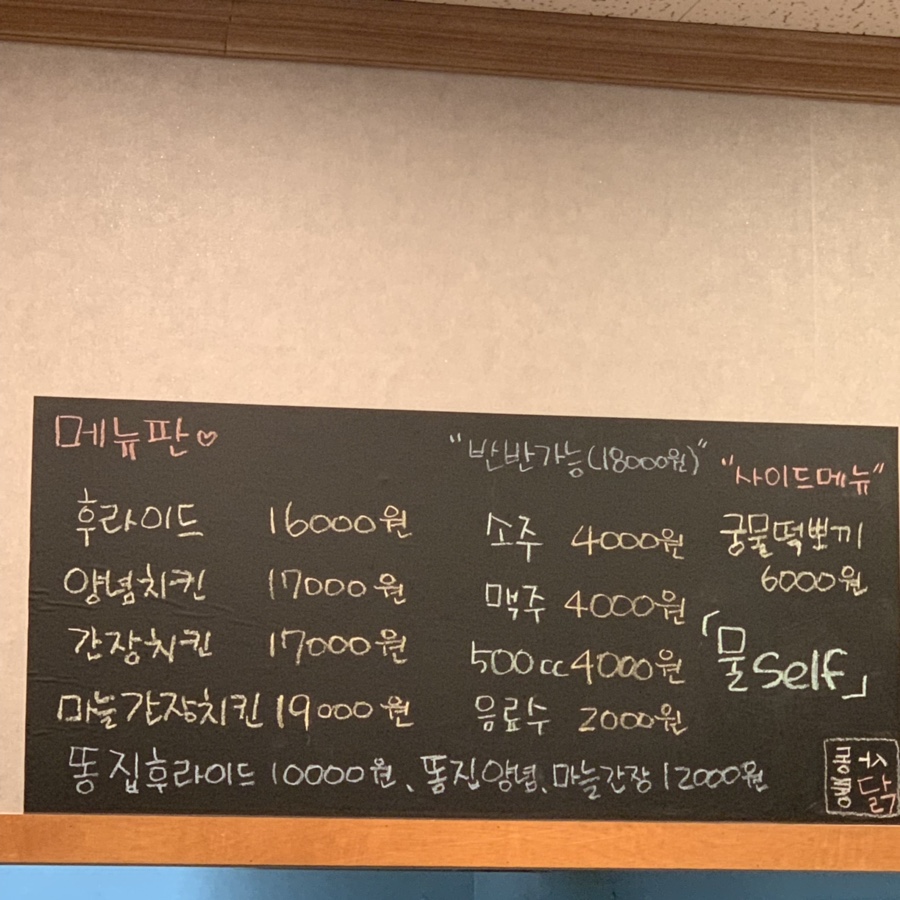 메뉴판♡
후라이드 16000원
양념치킨 17000원
간장치킨 17000원
마늘간장치킨 19000원
"반반가능(18000원)"
소주 4000원
맥주 4000원
500cc 4000원
음료수 2000원
"사이드메뉴"
궁물떡뽀끼
6000원
「물self」
똥집후라이드 10000원、똥집양념、마늘간장 12000원
닭